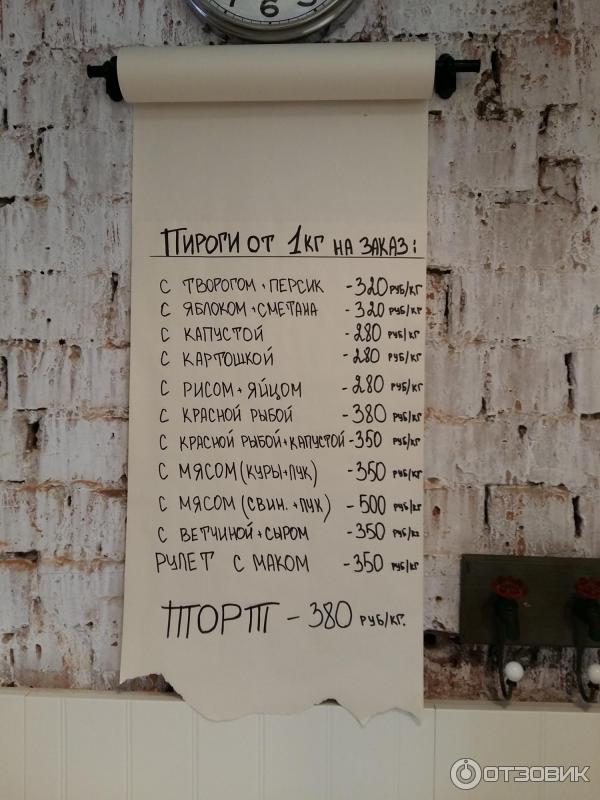 6 5
ПИРОГИ ОТ 1КГ НА ЗАКАЗ:
С ТВОРОГОМ + ПЕРСИК - 320 РУБ/КГ
С ЯБЛОКОМ + СМЕТАНА - 320 РУБ/КГ
С КАПУСТОЙ - 280 РУБ/КГ
С КАРТОШКОЙ - 280 РУБ/КГ
С РИСОМ + ЯЙЦОМ - 280 РУБ/КГ
С КРАСНОЙ РЫБОЙ - 380 РУБ/КГ
С КРАСНОЙ РЫБОЙ + КАПУСТОЙ - 350 РУБ/КГ
С МЯСОМ (КУРЫ + ЛУК) - 350 РУБ/КГ
С МЯСОМ (СВИН. + ЛУК) - 500 РУБ/КГ
С ВЕТЧИНОЙ + СЫРОМ - 350 РУБ/КГ
РУЛЕТ С МАКОМ - 350 РУБ/КГ
ТОРТ - 380 РУБ/КГ.
ОТЗОВИК